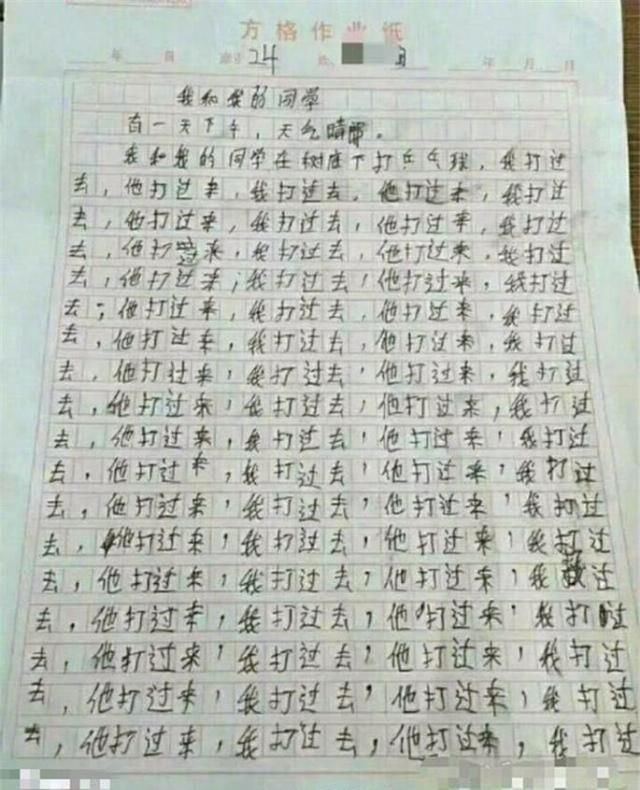 方格作业纸
年 班 24 年 月 日
我和我的同学
有一天下午，天气晴。
我和我的同学在树底下打乒乓球，我打过
去，他打过来，我打过去，他打过来，我打过
去，他打过来，我打过去，他打过来，我打过
去，他打过来，我打过去，他打过来，我打过
去，他打过来；我打过去，他打过来，我打过
去；他打过来，我打过去，他打过来，我打过
去，他打过来，我打过去，他打过来，我打过
去，他打过来，我打过去，他打过来，我打过
去，他打过来，我打过去，他打过来，我打过
去，他打过来，我打过去，他打过来，我打过
去，他打过来，我打过去，他打过来，我打过
去，他打过来，我打过去，他打过来，我打过
去，他打过来，我打过去，他打过来，我打过
去，他打过来，我打过去，他打过来，我过
去，他打过来，我打过去，他打过来，我打过
去，他打过来，我打过去，他打过来，我打过
去，他打过来，我打过去，他打过来，我打过
去，他打过来，我打过去，他打过来，我打过